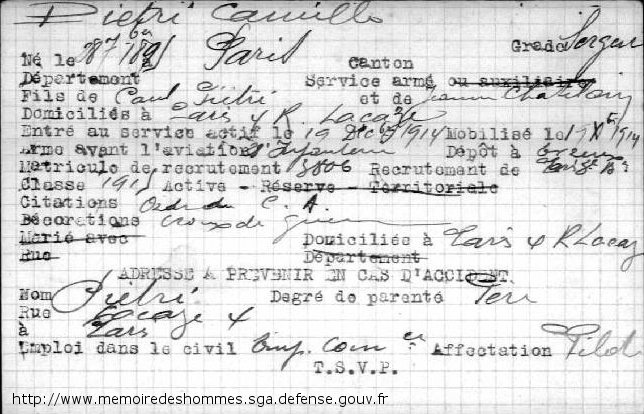 Pietri Camille
Né le 28 7bre 1895 Paris Canton Grade Sergent
Département Service armé ou auxiliaire
Fils de Paul Pietri et de Jeanne
Domiciliés à Paris 4 R. Lacaze
Entré au service actif le 19 Dec 1914 Mobilisé le 19 Xbre 1914
Arme avant l'aviation Infanterie Dépôt à
Matricule de recrutement 3806 Recrutement de
Classe 1915 Active - Réserve - Territoriale
Citations Ordre du C. A.
Décorations croix de guerre
Marié avec Domiciliés à Paris 4 R Lacaze
Rue Département
ADRESSE A PREVENIR EN CAS D'ACCIDENT.
Nom Pietri Degré de parenté Père
Rue Lacaze 4
à Paris
Emploi dans le civil Emp. Com ce Affectation Pilote
T.S.V.P.
http://www.memoiredeshommes.sga.defense.gouv.fr